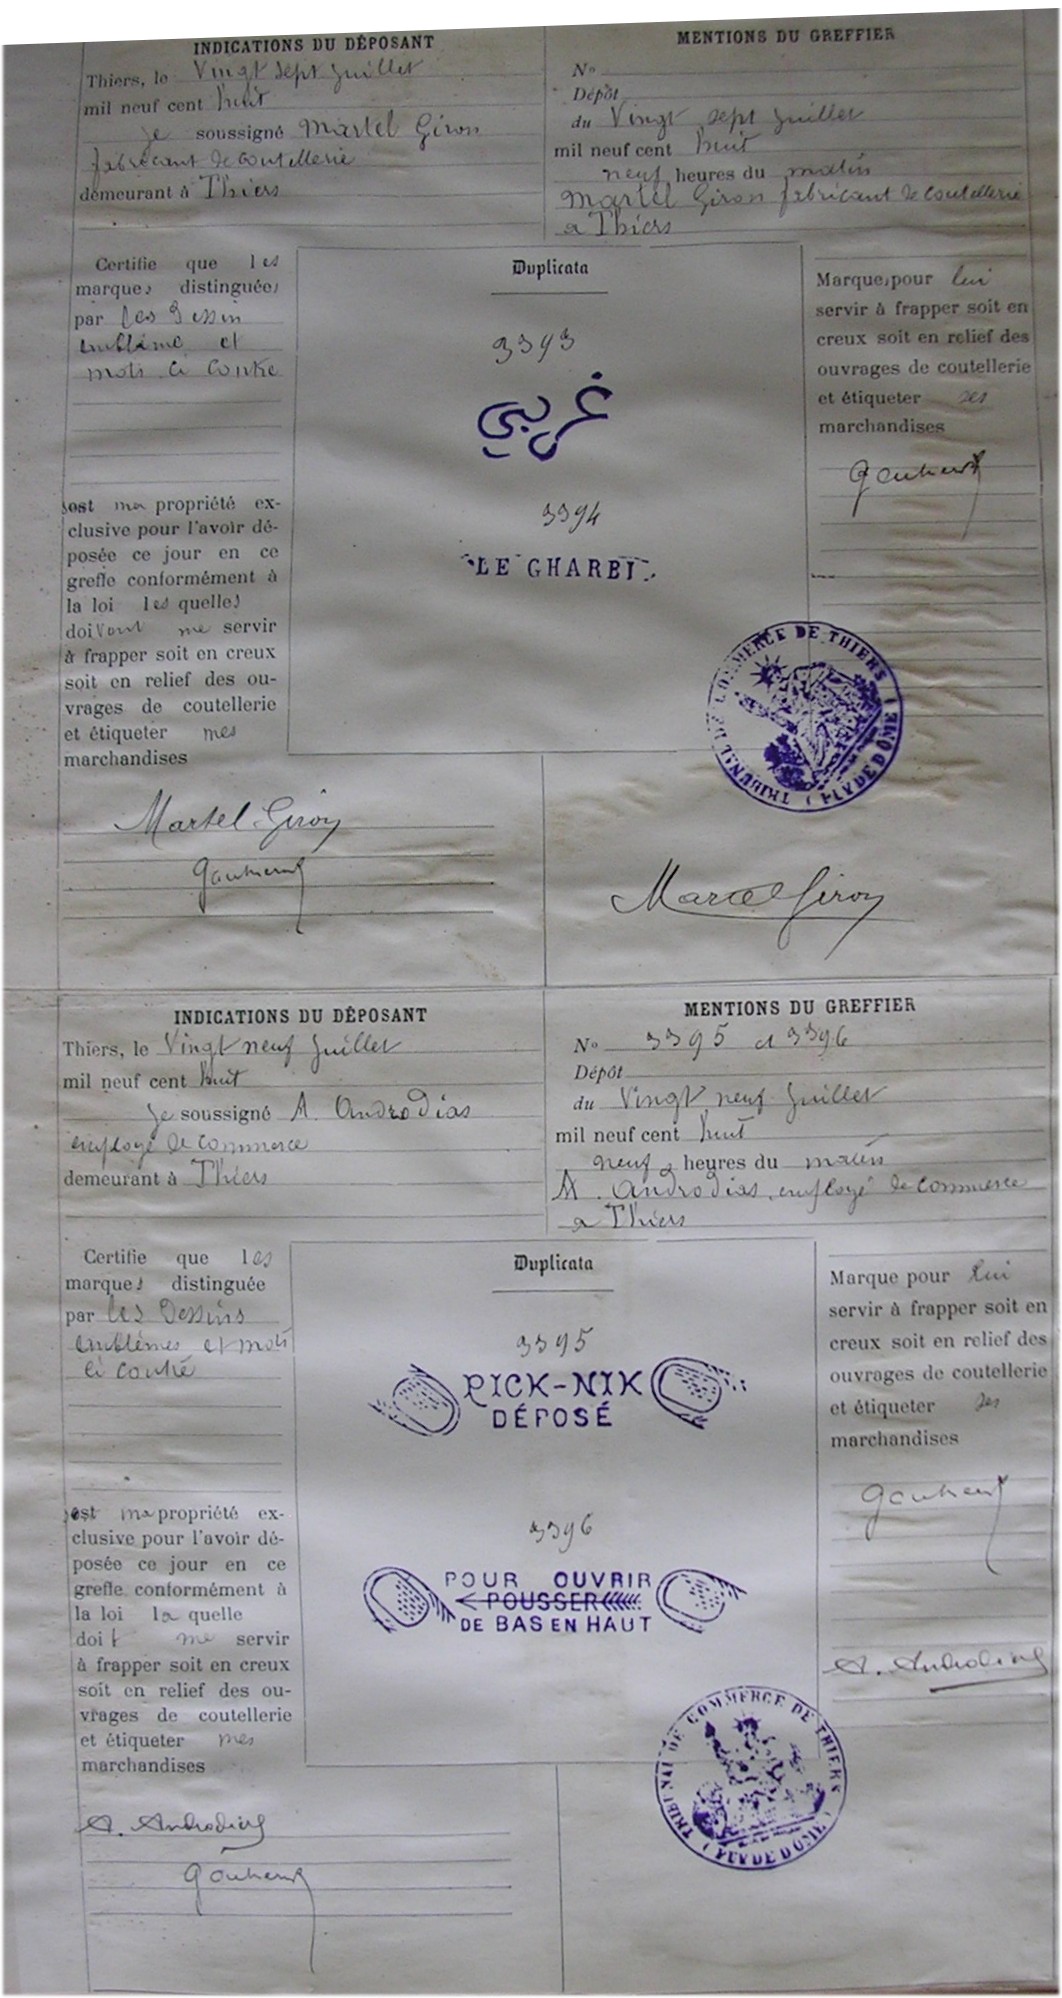 INDICATIONS DU DÉPOSANT
Thiers, le Vingt sept Juillet
mil neuf cent huit
Je soussigné Martel Giron
fabricant de coutellerie
demeurant à Thiers
MENTIONS DU GREFFIER
No
Dépôt
du Vingt sept Juillet
mil neuf cent huit
neuf heures du matin
Martel Giron fabricant de coutellerie
a Thiers
Certifie que les
marques distinguées
par les Dessin
emblème et
mots ci contre
sont ma propriété ex-
clusive pour l'avoir dé-
posée ce jour en ce
greffe conformément à
la loi lesquelles
doivent me servir
à frapper soit en creux
soit en relief des ou-
vrages de coutellerie
et étiqueter mes
marchandises
Duplicata
3393
غربي
3394
LE GHARBI
Marques pour lui
servir à frapper soit en
creux soit en relief des
ouvrages de coutellerie
et étiqueter ses
marchandises
TRIBUNAL DE COMMERCE DE THIERS (PUY DE DÔME)
Martel Giron
Marcel Giron
INDICATIONS DU DÉPOSANT
Thiers, le Vingt neuf Juillet
mil neuf cent huit
Je soussigné A. Androdias
employé de commerce
demeurant à Thiers
MENTIONS DU GREFFIER
No 3395 et 3396
Dépôt
du Vingt neuf Juillet
mil neuf cent huit
neuf heures du matin
A. Androdias employé de commerce
a Thiers
Certifie que les
marques distinguée
par les Dessins
emblèmes et mots
ci contre
est ma propriété ex-
clusive pour l'avoir dé-
posée ce jour en ce
greffe conformément à
la loi la quelle
doit me servir
à frapper soit en creux
soit en relief des ou-
vrages de coutellerie
et étiqueter mes
marchandises
Duplicata
3395
PICK-NIK
DÉPOSÉ
3396
POUR OUVRIR
POUSSER
DE BAS EN HAUT
Marque pour lui
servir à frapper soit en
creux soit en relief des
ouvrages de coutellerie
et étiqueter ses
marchandises
A. Androdias
TRIBUNAL DE COMMERCE DE THIERS (PUY DE DOME)
A. Androdias